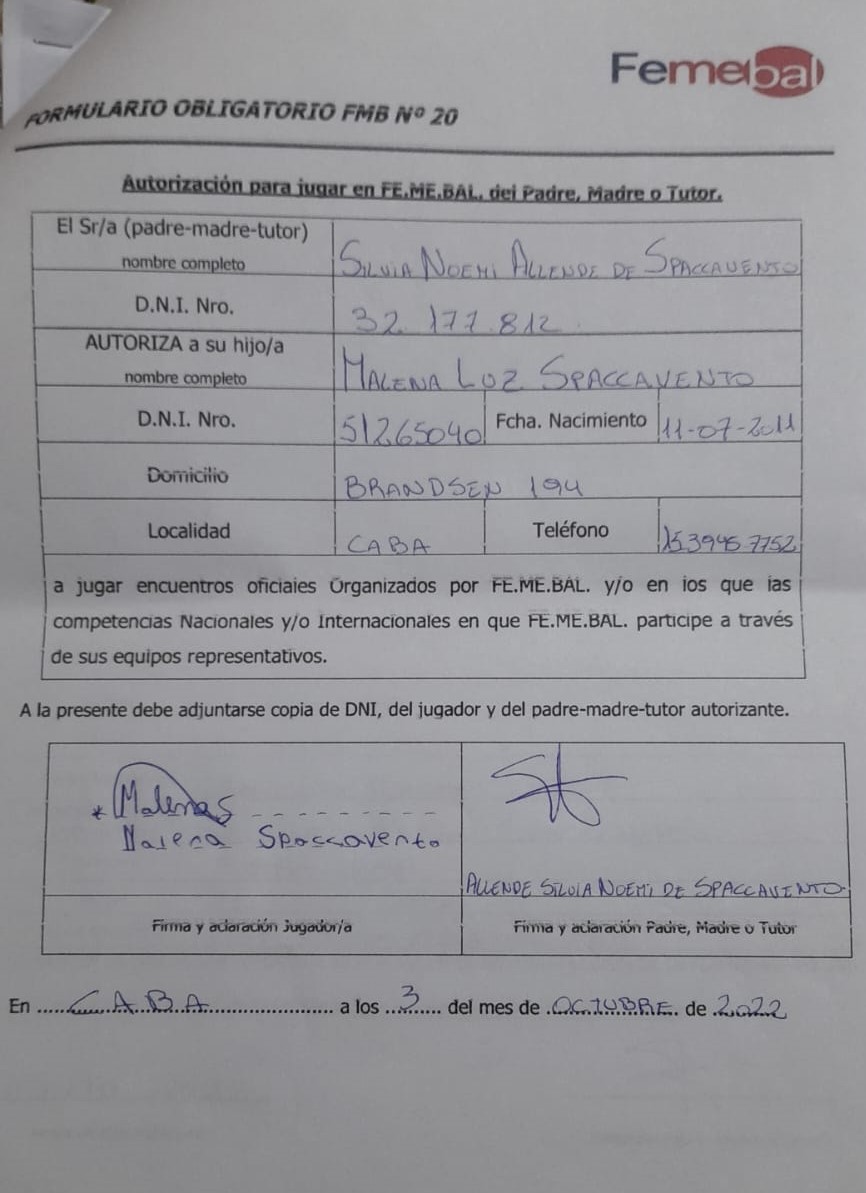 Femebal
FORMULARIO OBLIGATORIO FMB Nº 20
Autorización para jugar en FE.ME.BAL. del Padre, Madre o Tutor.
El Sr/a (padre-madre-tutor)
nombre completo
SILVIA NOEMI ALLENDE DE SPACCAVENTO
D.N.I. Nro.
32.177.812
AUTORIZA a su hijo/a
nombre completo
MALENA LUZ SPACCAVENTO
D.N.I. Nro. 51265040 Fcha. Nacimiento 11-07-2011
Domicilio BRANDSEN 194
Localidad CABA Teléfono 15 3945 7752
a jugar encuentros oficiales Organizados por FE.ME.BAL. y/o en los que las
competencias Nacionales y/o Internacionales en que FE.ME.BAL. participe a través
de sus equipos representativos.
A la presente debe adjuntarse copia de DNI, del jugador y del padre-madre-tutor autorizante.
* Malenas
Malena Spaccavento
ALLENDE SILVIA NOEMI DE SPACCAVENTO
Firma y aclaración Jugador/a Firma y aclaración Padre, Madre o Tutor
En ..... CABA ..... a los ..3.. del mes de .OCTUBRE. de .2022